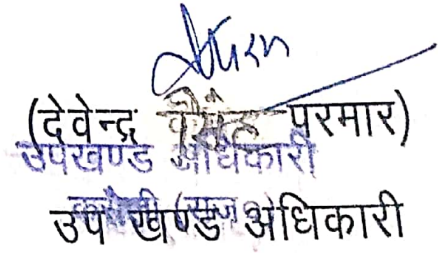 (देवेन्द्र सिंह परमार)
उपखण्ड अधिकारी
उप खण्ड अधिकारी